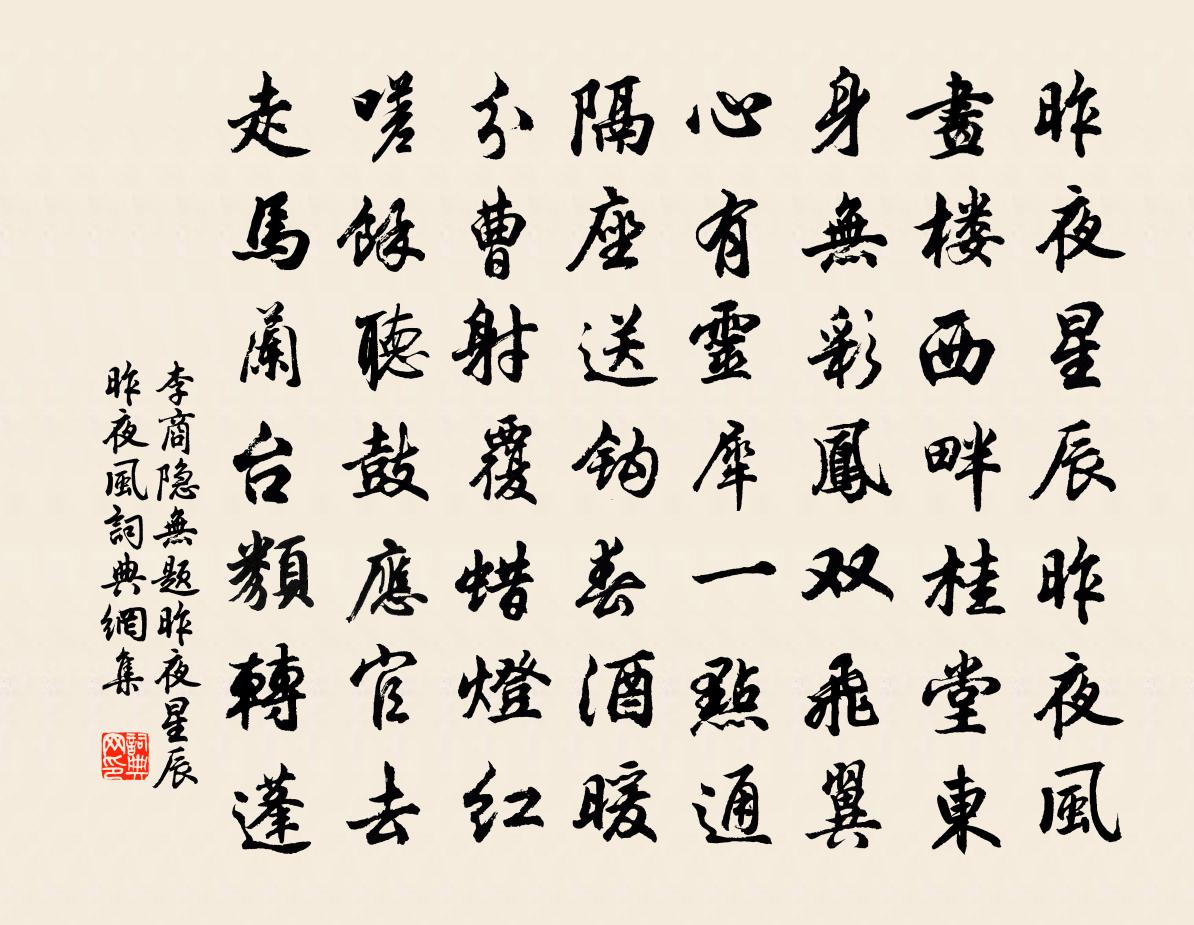 昨夜星辰昨夜風
畫楼西畔桂堂東
身無彩鳳双飛翼
心有靈犀一點通
隔座送鈎春酒暖
分曹射覆蜡燈红
嗟餘聽鼓應官去
走馬蘭台類轉蓬
李商隐無题昨夜星辰
昨夜風詞典網集
詞典
网印